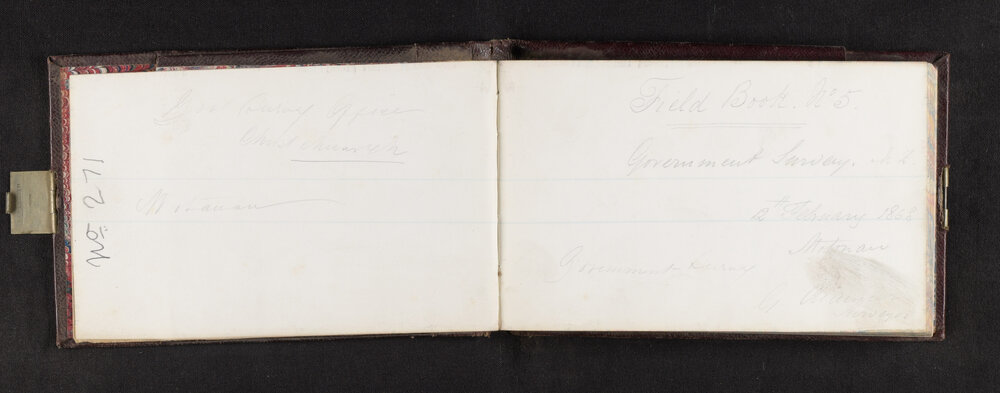 Gov't Survey Office
Christchurch
No 271
Field Book. No 5.
Government Survey. N.Z.
12th February 1868
Government Survey
G.
Surveyor